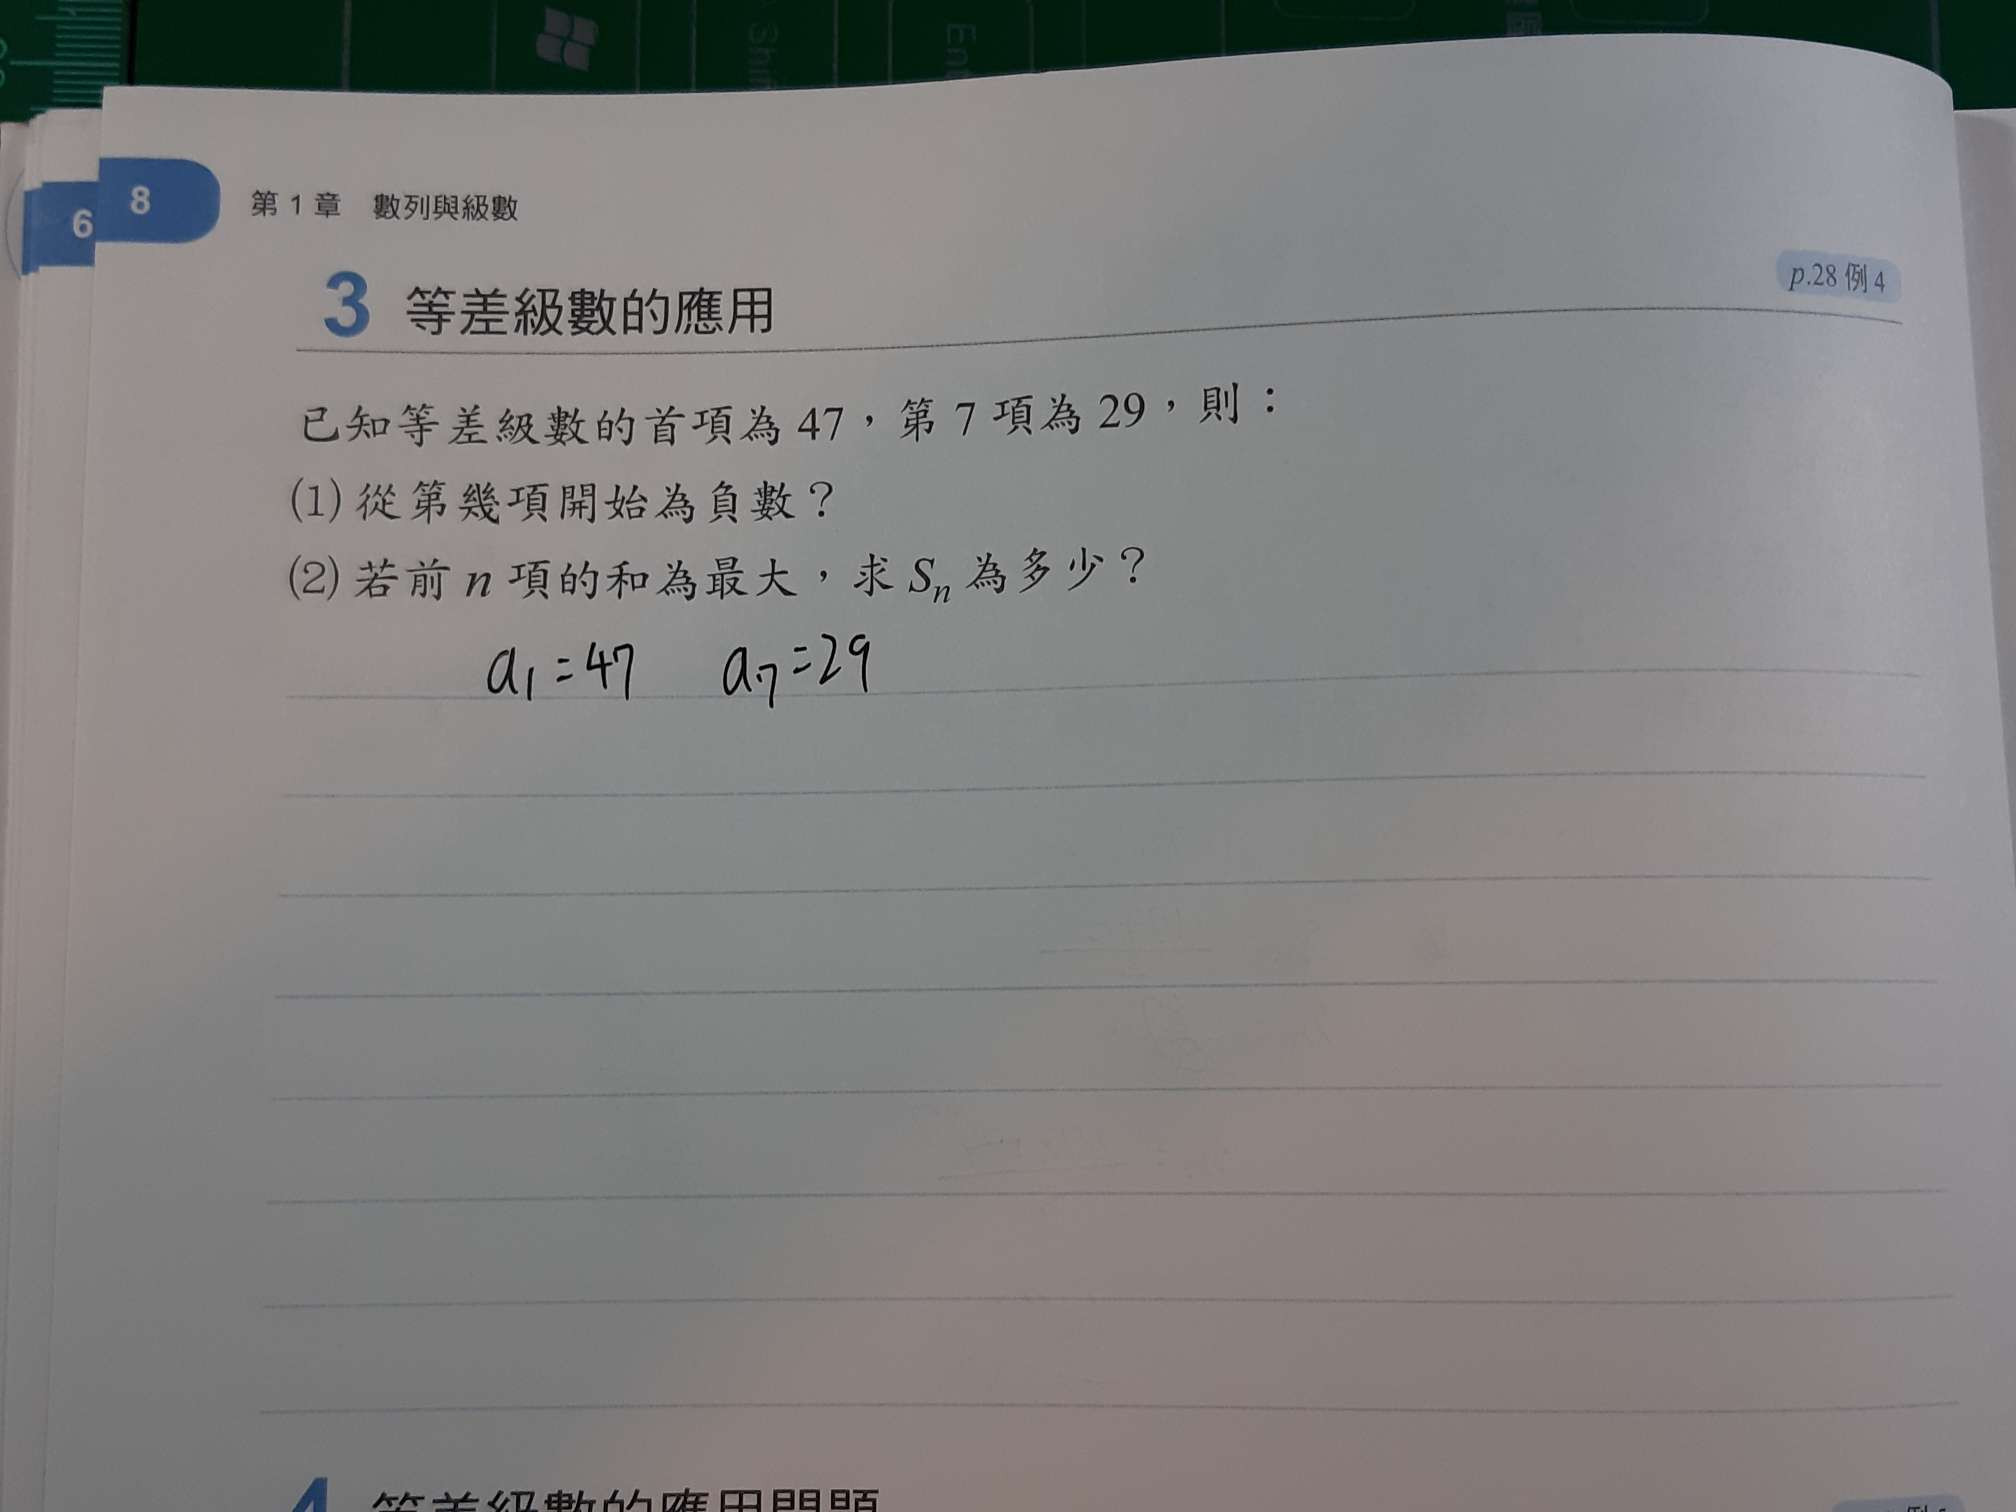 Shif
En
6
8
第 1 章 數列與級數
3 等差級數的應用
p.28 例 4
已知等差級數的首項為 47，第 7 項為 29，則：
(1) 從第幾項開始為負數？
(2) 若前 n 項的和為最大，求 Sn 為多少？
a1=47 a7=29
4 等差級數的應用問題